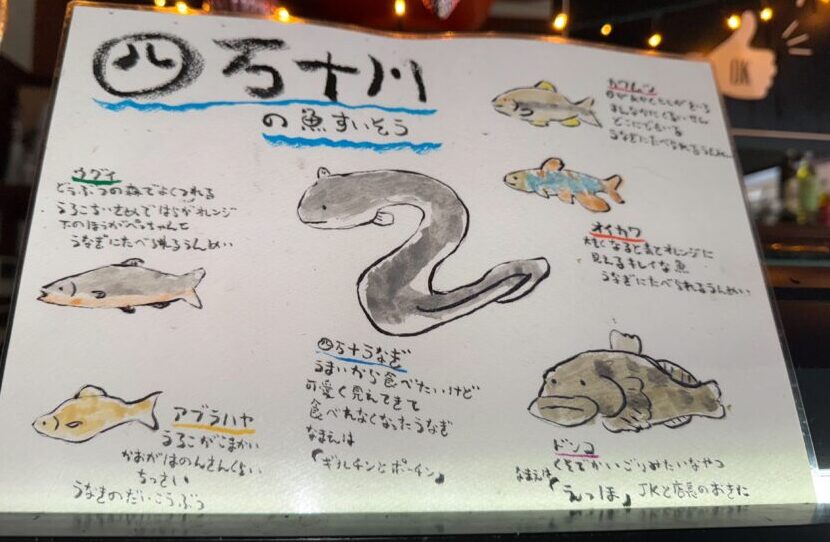 四万十川
の魚すいそう
OK
カワムツ
どこにでもいる
うなぎにたべられるうんめい
ウグイ
どうぶつの森でよくつれる
うろこちいさめではらがオレンジ
下のほうがぺちゃんと
うなぎにたべられるうんめい
オイカワ
大きくなると青とオレンジに
見えるキレイな魚
うなぎにたべられるうんめい
四万十うなぎ
うまいから食べたいけど
可愛く見えてきて
食べれなくなったうなぎ
なまえは
「ギルチンとポーチン」
アブラハヤ
うろこがこまかい
かおがはんのんさんくさい
ちっさい
うなぎのだいこうぶつ
ドンコ
くそでかいごりみたいなやつ
なまえは「えっほ」JKと店長のおきた